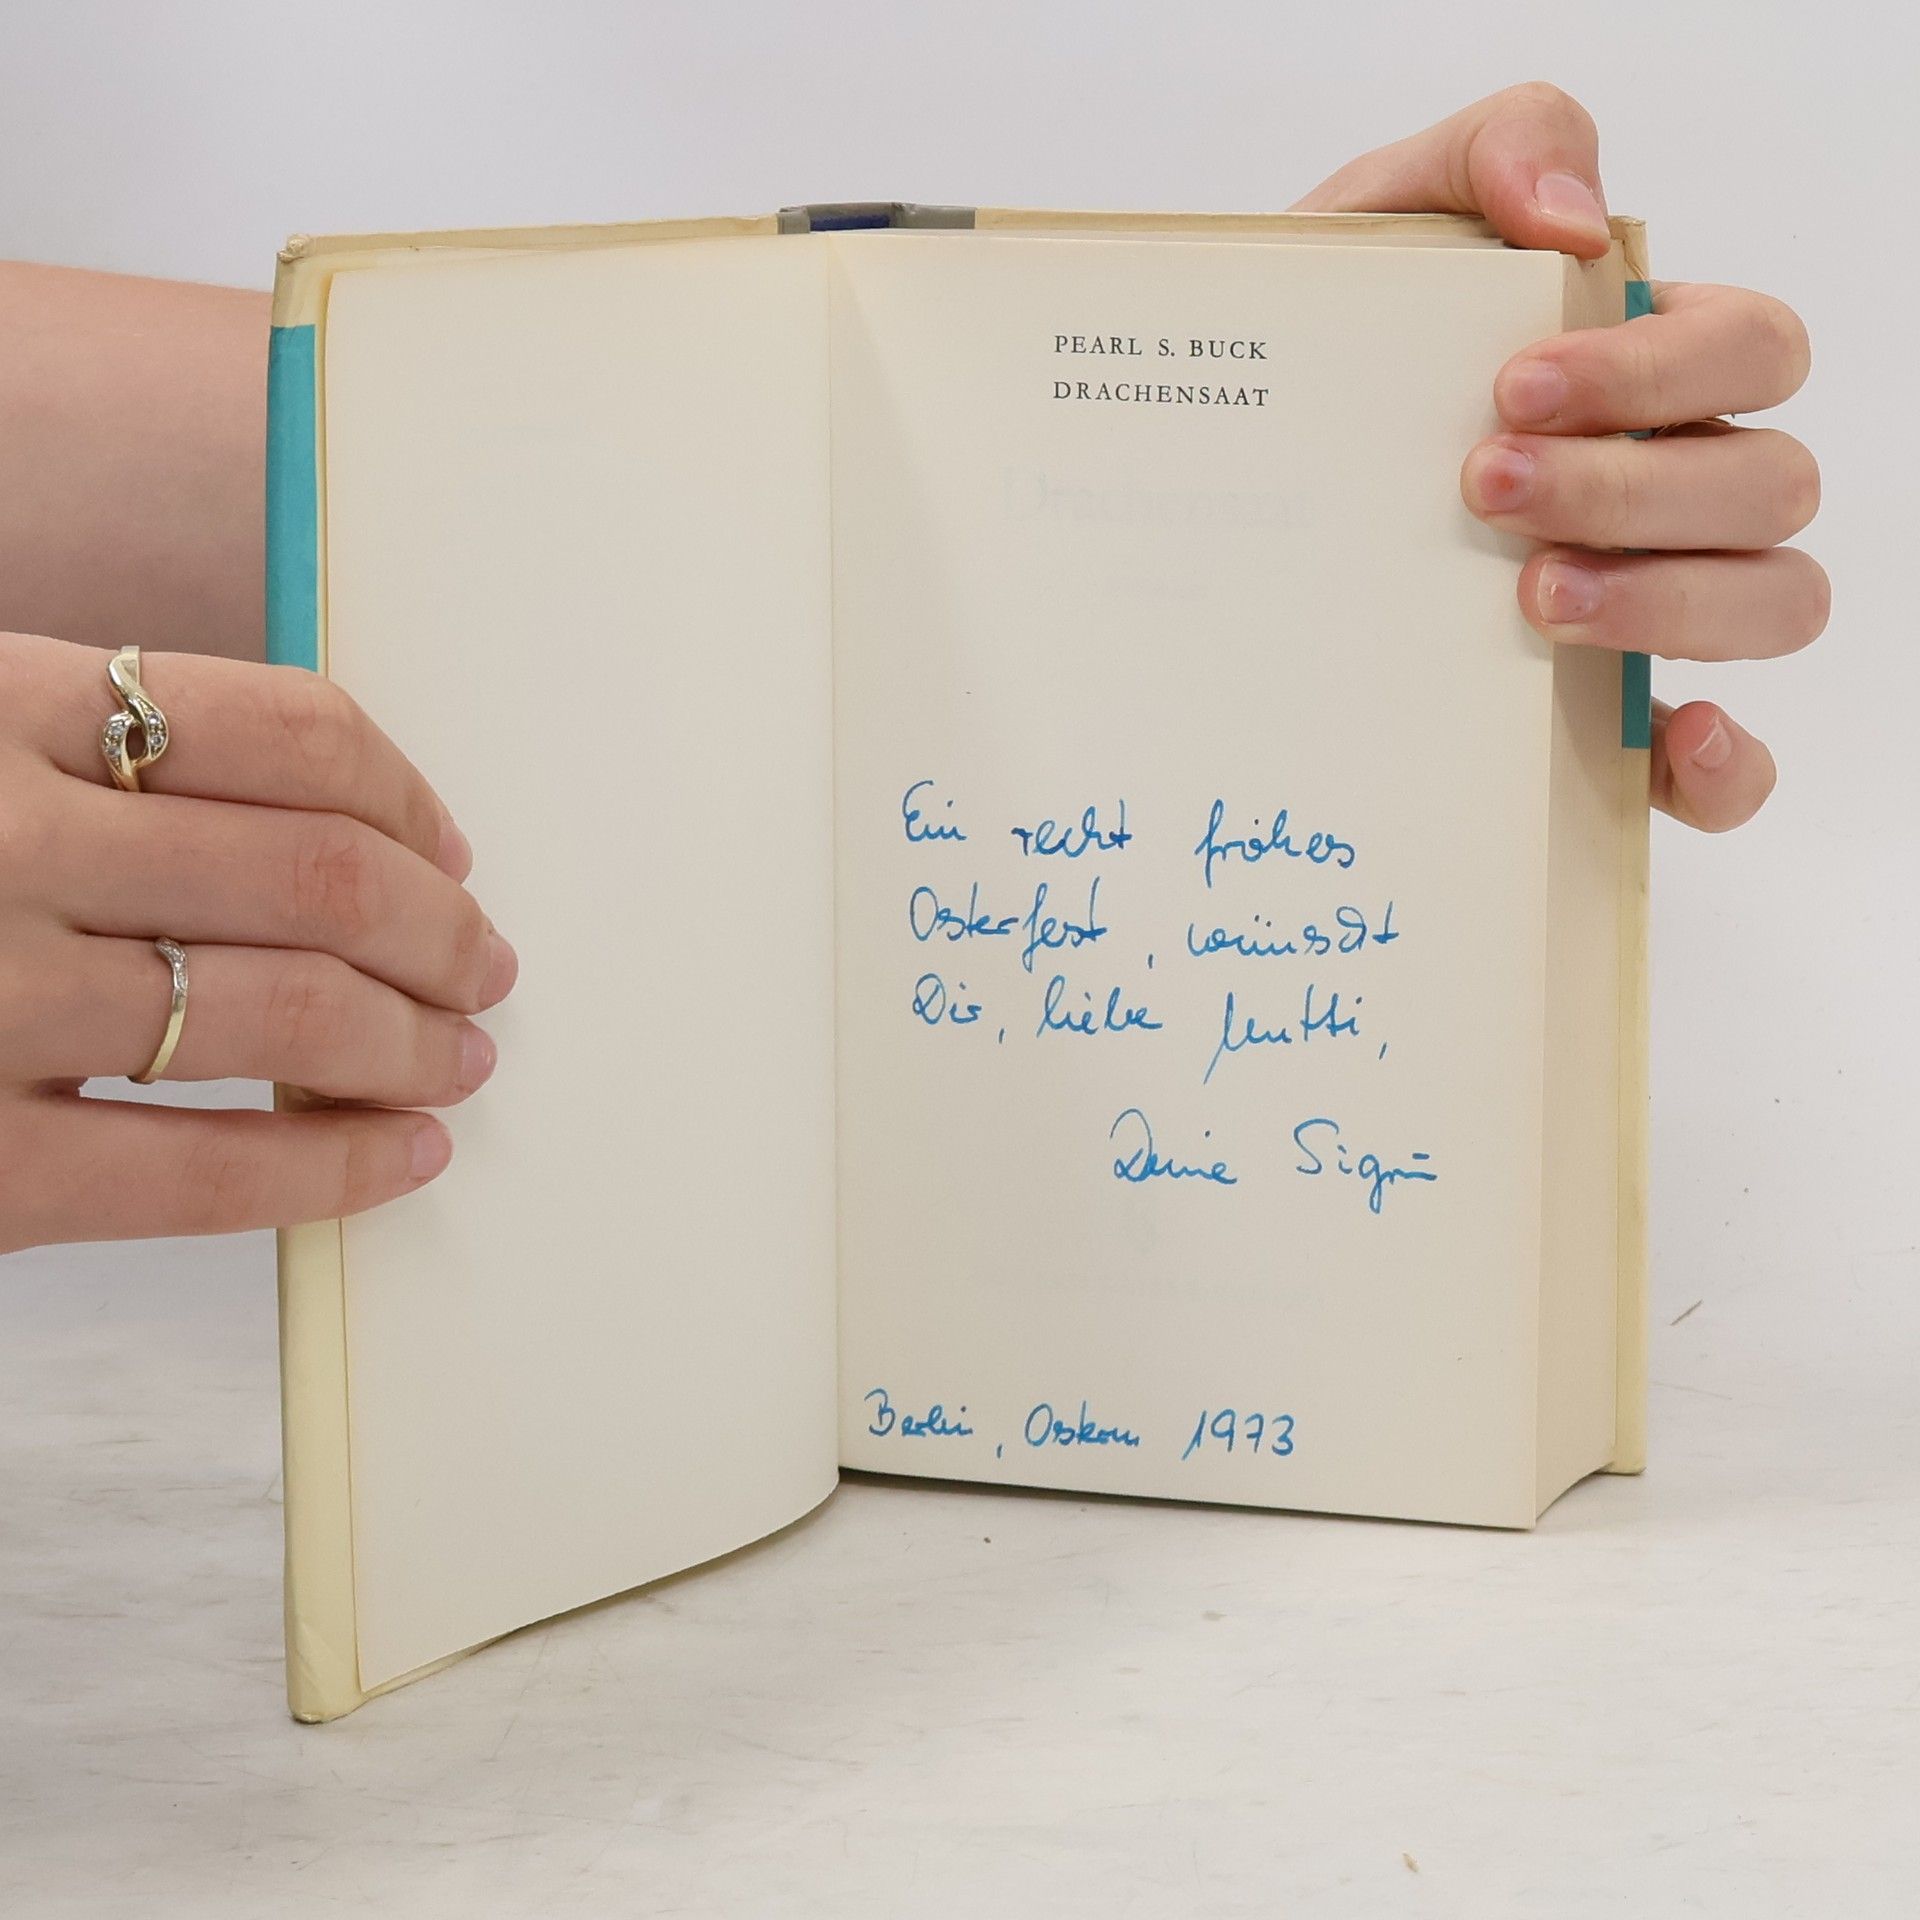 PEARL S. BUCK
DRACHENSAAT
Drachensaat
Ein recht frohes
Osterfest, wünscht
Dir, liebe Mutti,
Deine Sigrun
Berlin, Ostern 1973